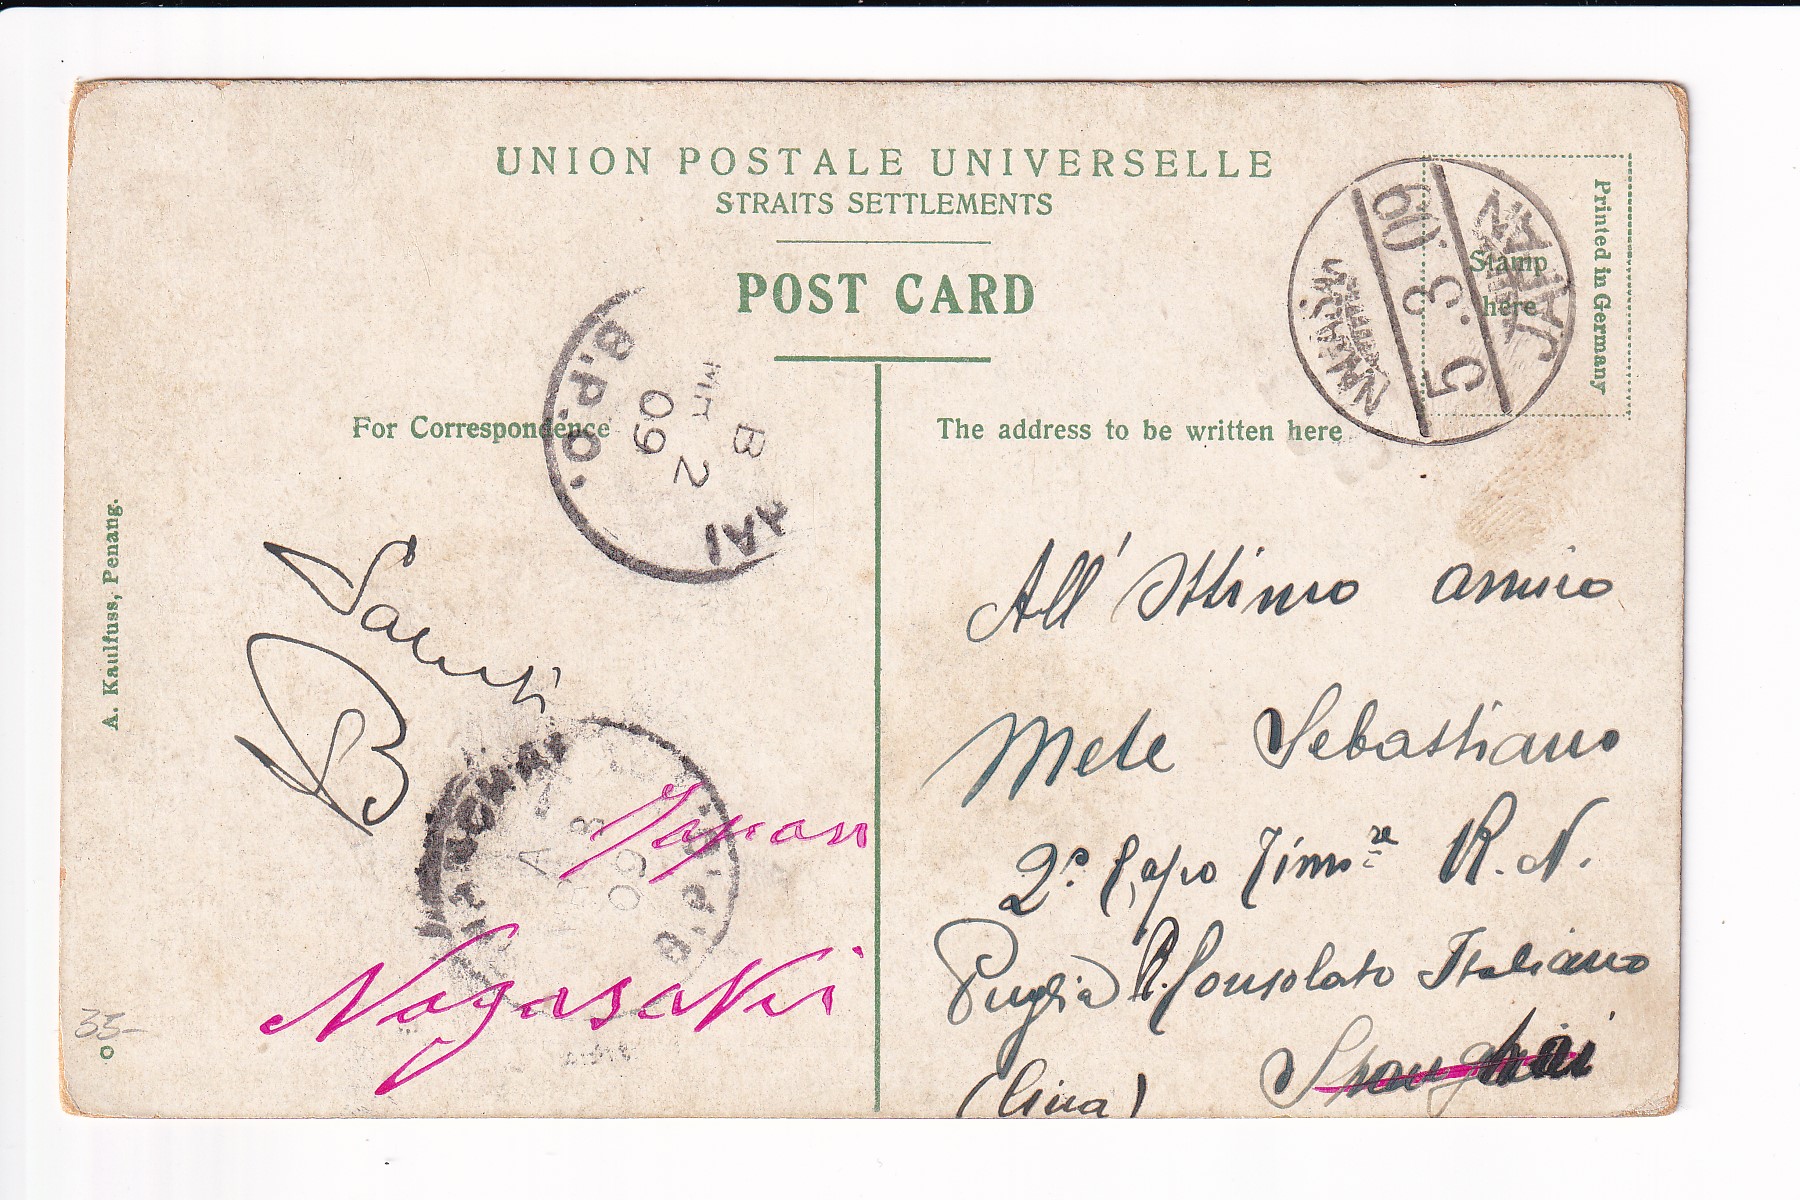 UNION POSTALE UNIVERSELLE
STRAITS SETTLEMENTS
POST CARD
Stamp
here
Printed in Germany
NAGASAKI
5.3.09
JAPAN
B.P.O.
B
2
09
HAI
For Correspondence
The address to be written here
A. Kaulfuss, Penang.
Saluti
B
All' Ottimo amico
Mele Sebastiano
2º Capo Timre R. N.
Puglia R. Consolato Italiano
(Cina) Shanghai
Japan
Nagasaki
A
09
B.P.O.
33-